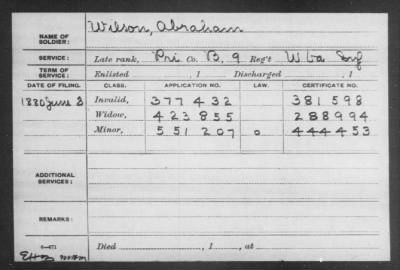 Wilson, Abraham
NAME OF
SOLDIER:
SERVICE: Late rank, Pri Co. B, 9 Reg't W Va Inf
TERM OF
SERVICE: Enlisted , 1 Discharged , 1
DATE OF FILING. CLASS. APPLICATION NO. LAW. CERTIFICATE NO.
1880 June 3 Invalid, 377432 381598
Widow, 423855 288994
Minor, 551207 0 444453
ADDITIONAL
SERVICES:
REMARKS:
Died , 1 , at